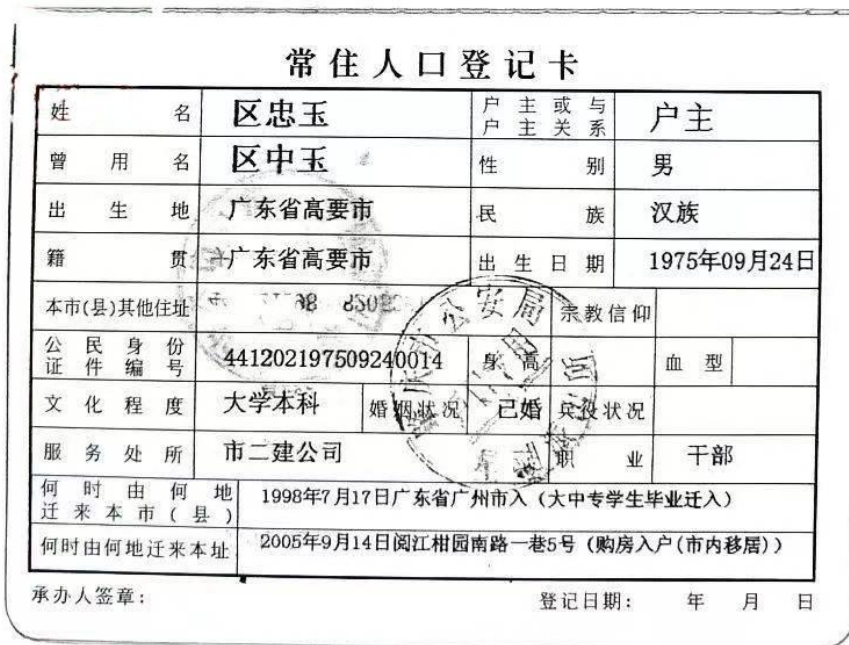 常住人口登记卡
姓名 区忠玉 户主或与户主关系 户主
曾用名 区中玉 性别 男
出生地 广东省高要市 民族 汉族
籍贯 广东省高要市 出生日期 1975年09月24日
本市(县)其他住址 宗教信仰
公民身份证件编号 441202197509240014 身高 血型
文化程度 大学本科 婚姻状况 已婚 兵役状况
服务处所 市二建公司 职业 干部
何时由何地迁来本市(县) 1998年7月17日广东省广州市入(大中专学生毕业迁入)
何时由何地迁来本址 2005年9月14日阅江柑园南路一巷5号(购房入户(市内移居))
承办人签章: 登记日期: 年 月 日
公安局